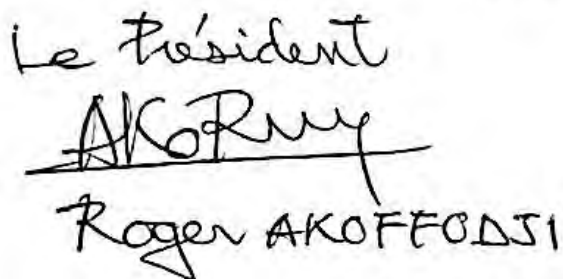 Le Président
AKORMY
Roger AKOFFODJI